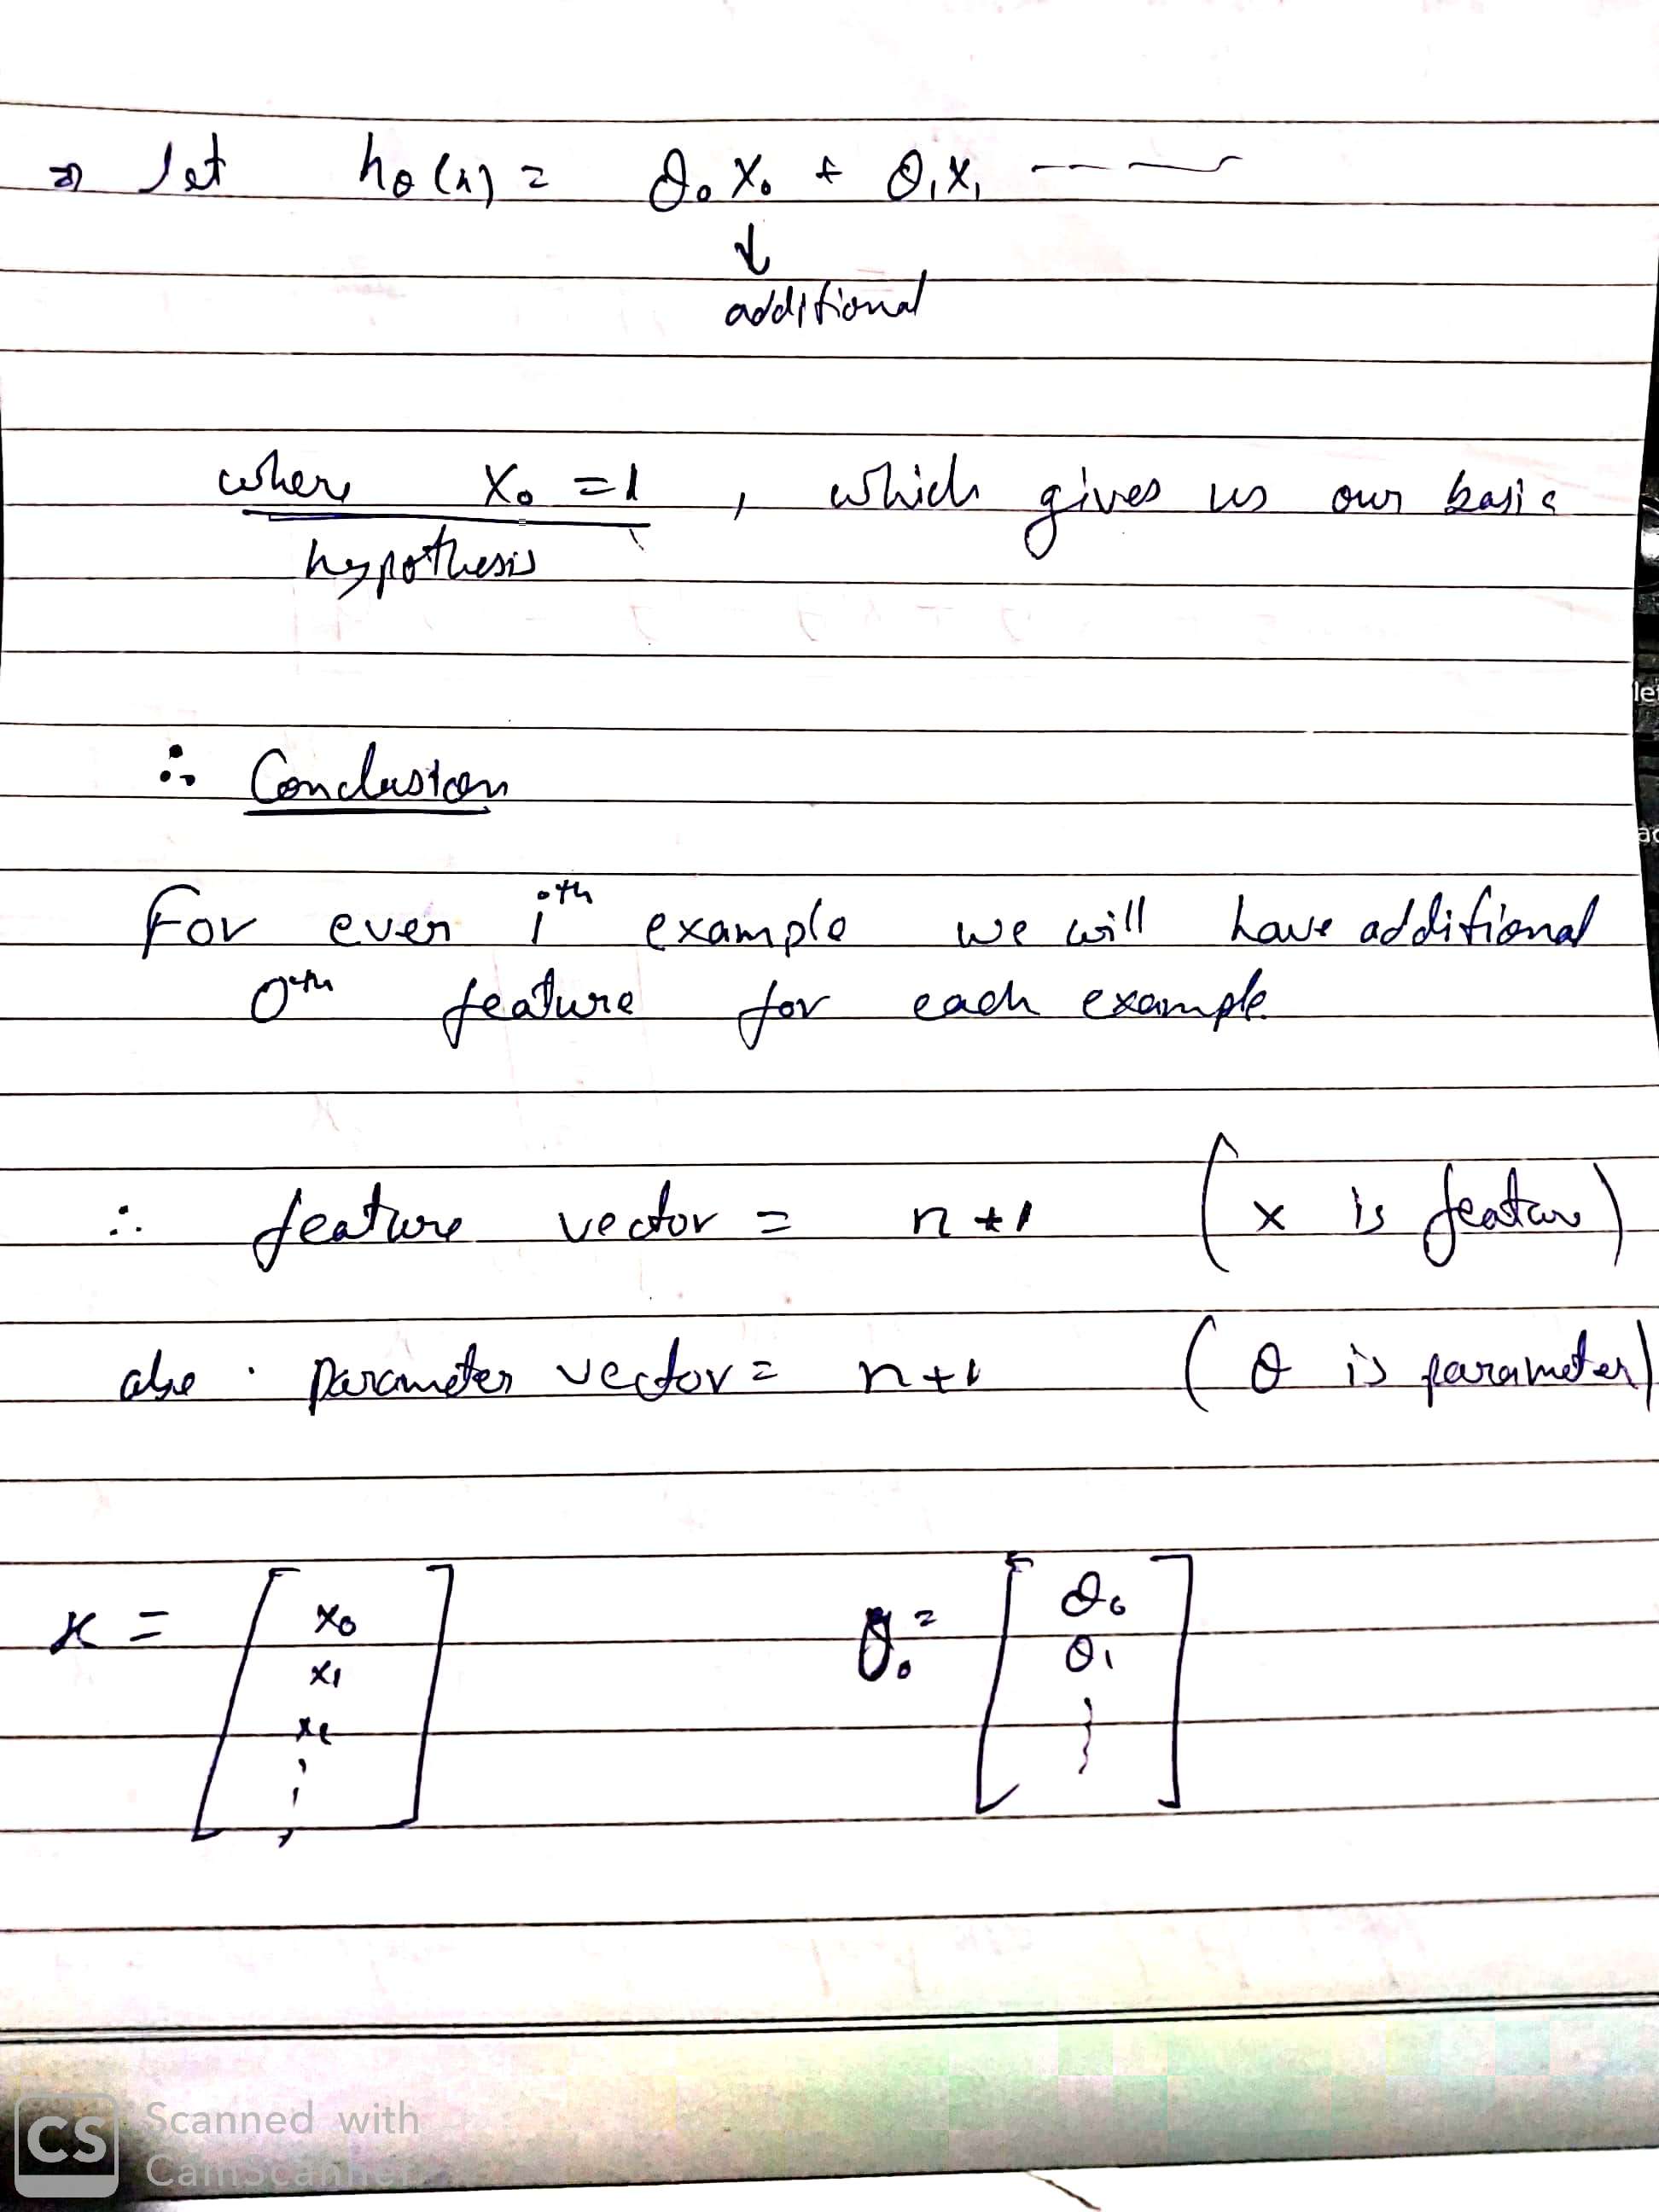 ⇒ let hθ(x) = θ₀ X₀ + θ₁ X₁ ----
↓
additional
where X₀ = 1 , which gives us our basic
hypothesis
∴ Conclusion
For ever iᵗʰ example we will have additional
0ᵗʰ feature for each example
∴ feature vector = n+1 (x is feature)
also . parameter vector = n+1 (θ is parameter)
x = [ x₀ θ₀ = [ θ₀
x₁ θ₁
⋮ ] ⋮ ]
CS Scanned with
CamScanner